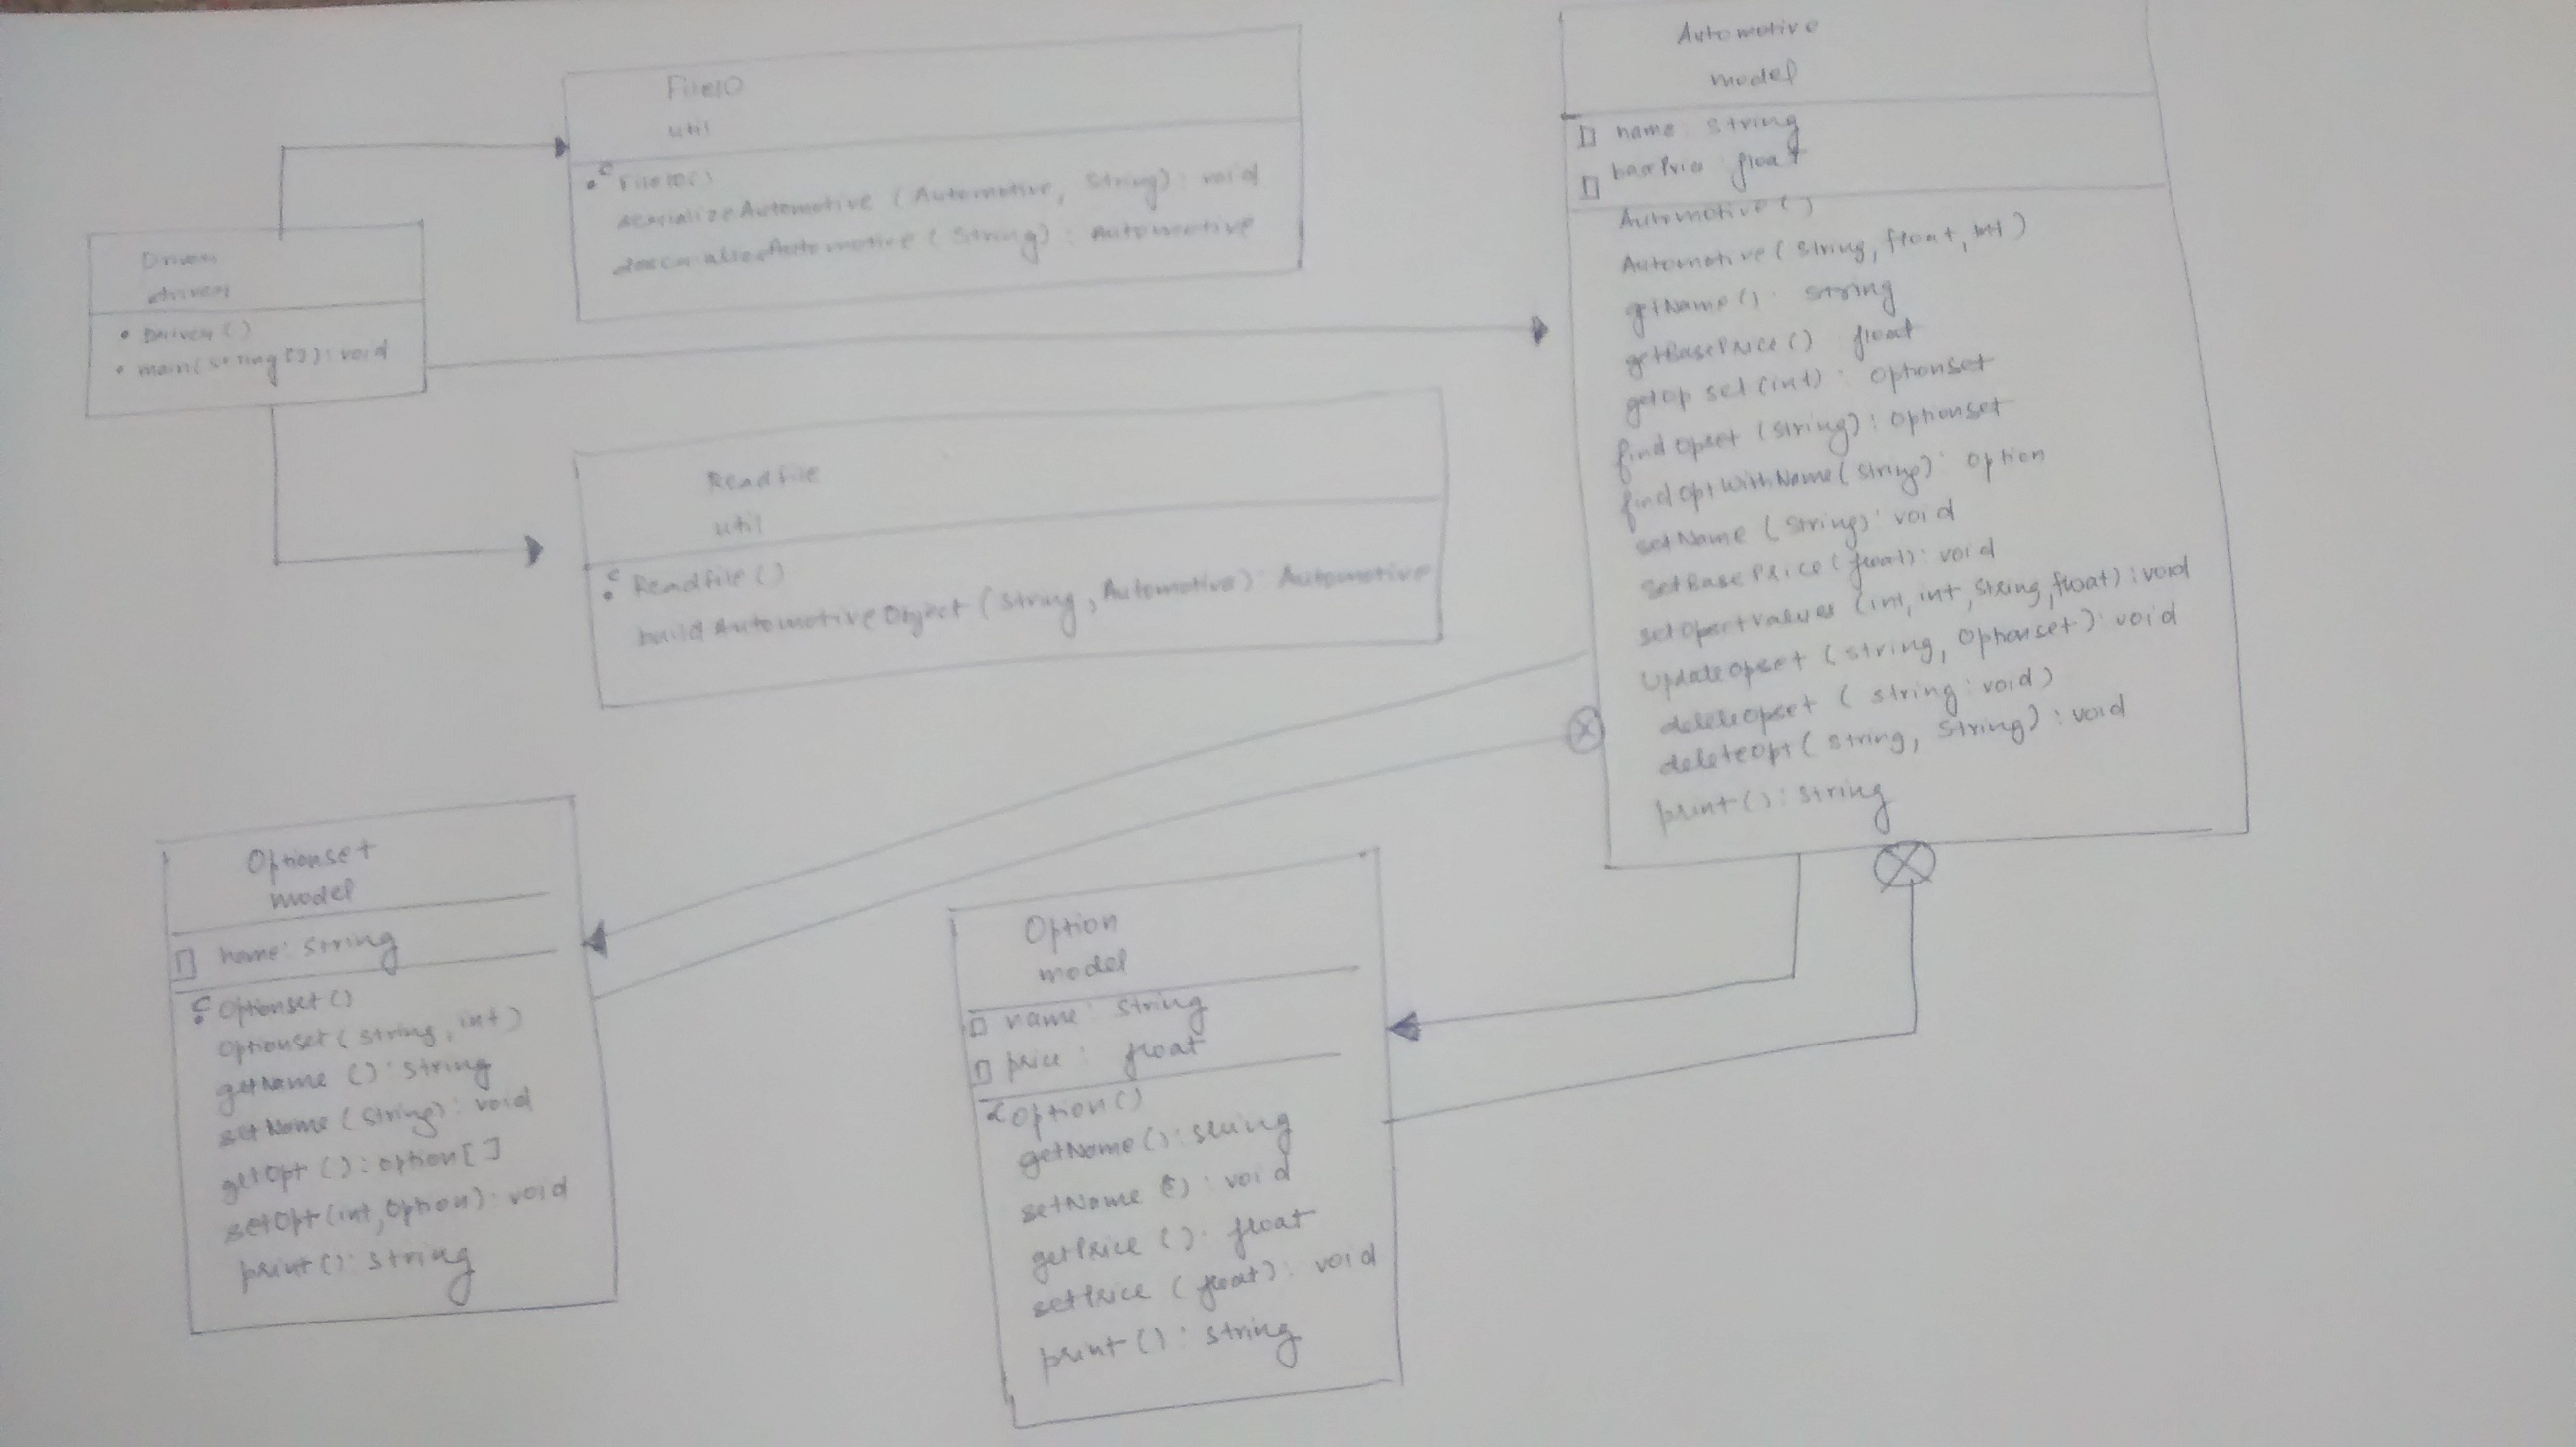 FileIO
util
FileIO()
serializeAutomotive (Automotive, String): void
deserializeAutomotive (String): Automotive
Driver
driver
Driver()
main(string[]): void
Readfile
util
Readfile()
buildAutomotiveObject (string, Automotive): Automotive
Automotive
model
name: string
float
Automotive()
Automotive (string, float, int)
getName(): string
getBasePrice() float
getOp set (int): Optionset
findOpset (string): Optionset
findOptWithName (string): Option
setName (string): void
setBasePrice (float): void
setOpsetvalues (int, int, string, float): void
UpdateOpset (string, Optionset): void
deleteOpset ( string: void)
deleteOpt ( string, string): void
print(): string
Optionset
model
name: string
Optionset()
Optionset (string, int)
getName (): string
setName (string): void
getOpt (): option[]
setOpt (int, Option): void
print(): string
Option
model
name: string
price: float
Option()
getName(): string
setName (): void
getPrice (): float
setPrice (float): void
print (): string